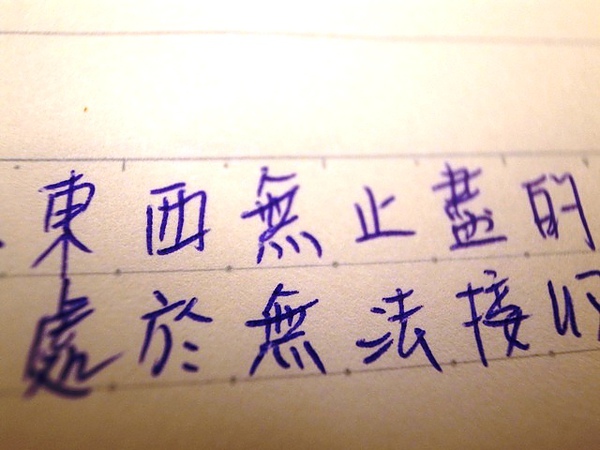 東西無止盡的
處於無法接收